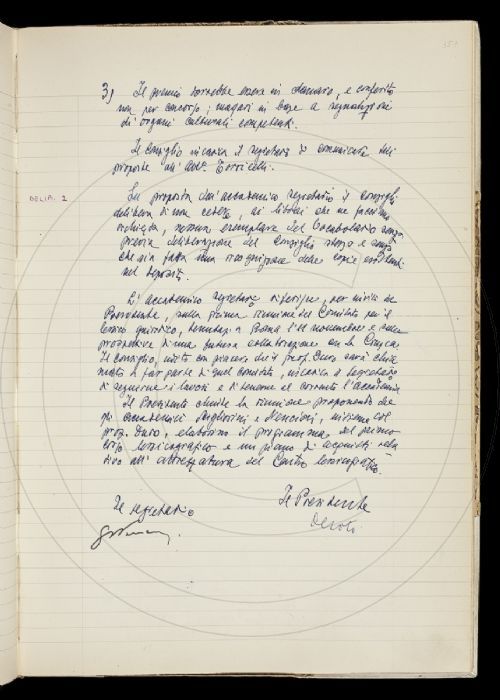 3) Il premio dovrebbe essere in denaro, e conferito
non per concorso; magari in base a segnalazioni
di organi culturali competenti.
Il Consiglio incarica il segretario di comunicare tali
proposte all'Avv. Torricelli.
DELIB. 2
Su proposta dell'accademico segretario il Consiglio
delibera di non cedere, ai librai che ne facciano
richiesta, nessun esemplare del Vocabolario senza
previa deliberazione del Consiglio stesso e senza
che sia fatta una ricognizione delle copie esistenti
nel deposito.
L'accademico segretario riferisce, per invito del
Presidente, sulla prima riunione del Comitato per il
lessico giuridico, tenutasi a Roma l'11 novembre e sulle
prospettive di una futura collaborazione con la Crusca.
Il Consiglio, udito con piacere che il prof. Duro sarà chia-
mato a far parte di quel comitato, incarica il segretario
di seguirne i lavori e di tenerne al corrente l'Accademia.
Il Presidente chiude la riunione proponendo che
gli accademici Pagliaini e Nencioni, insieme col
prof. Duro, elaborino il programma del primo
corso lessicografico e un piano di acquisti rela-
tivo all'attrezzatura del Centro lessicografico.
Il segretario
Il Presidente
Devoto